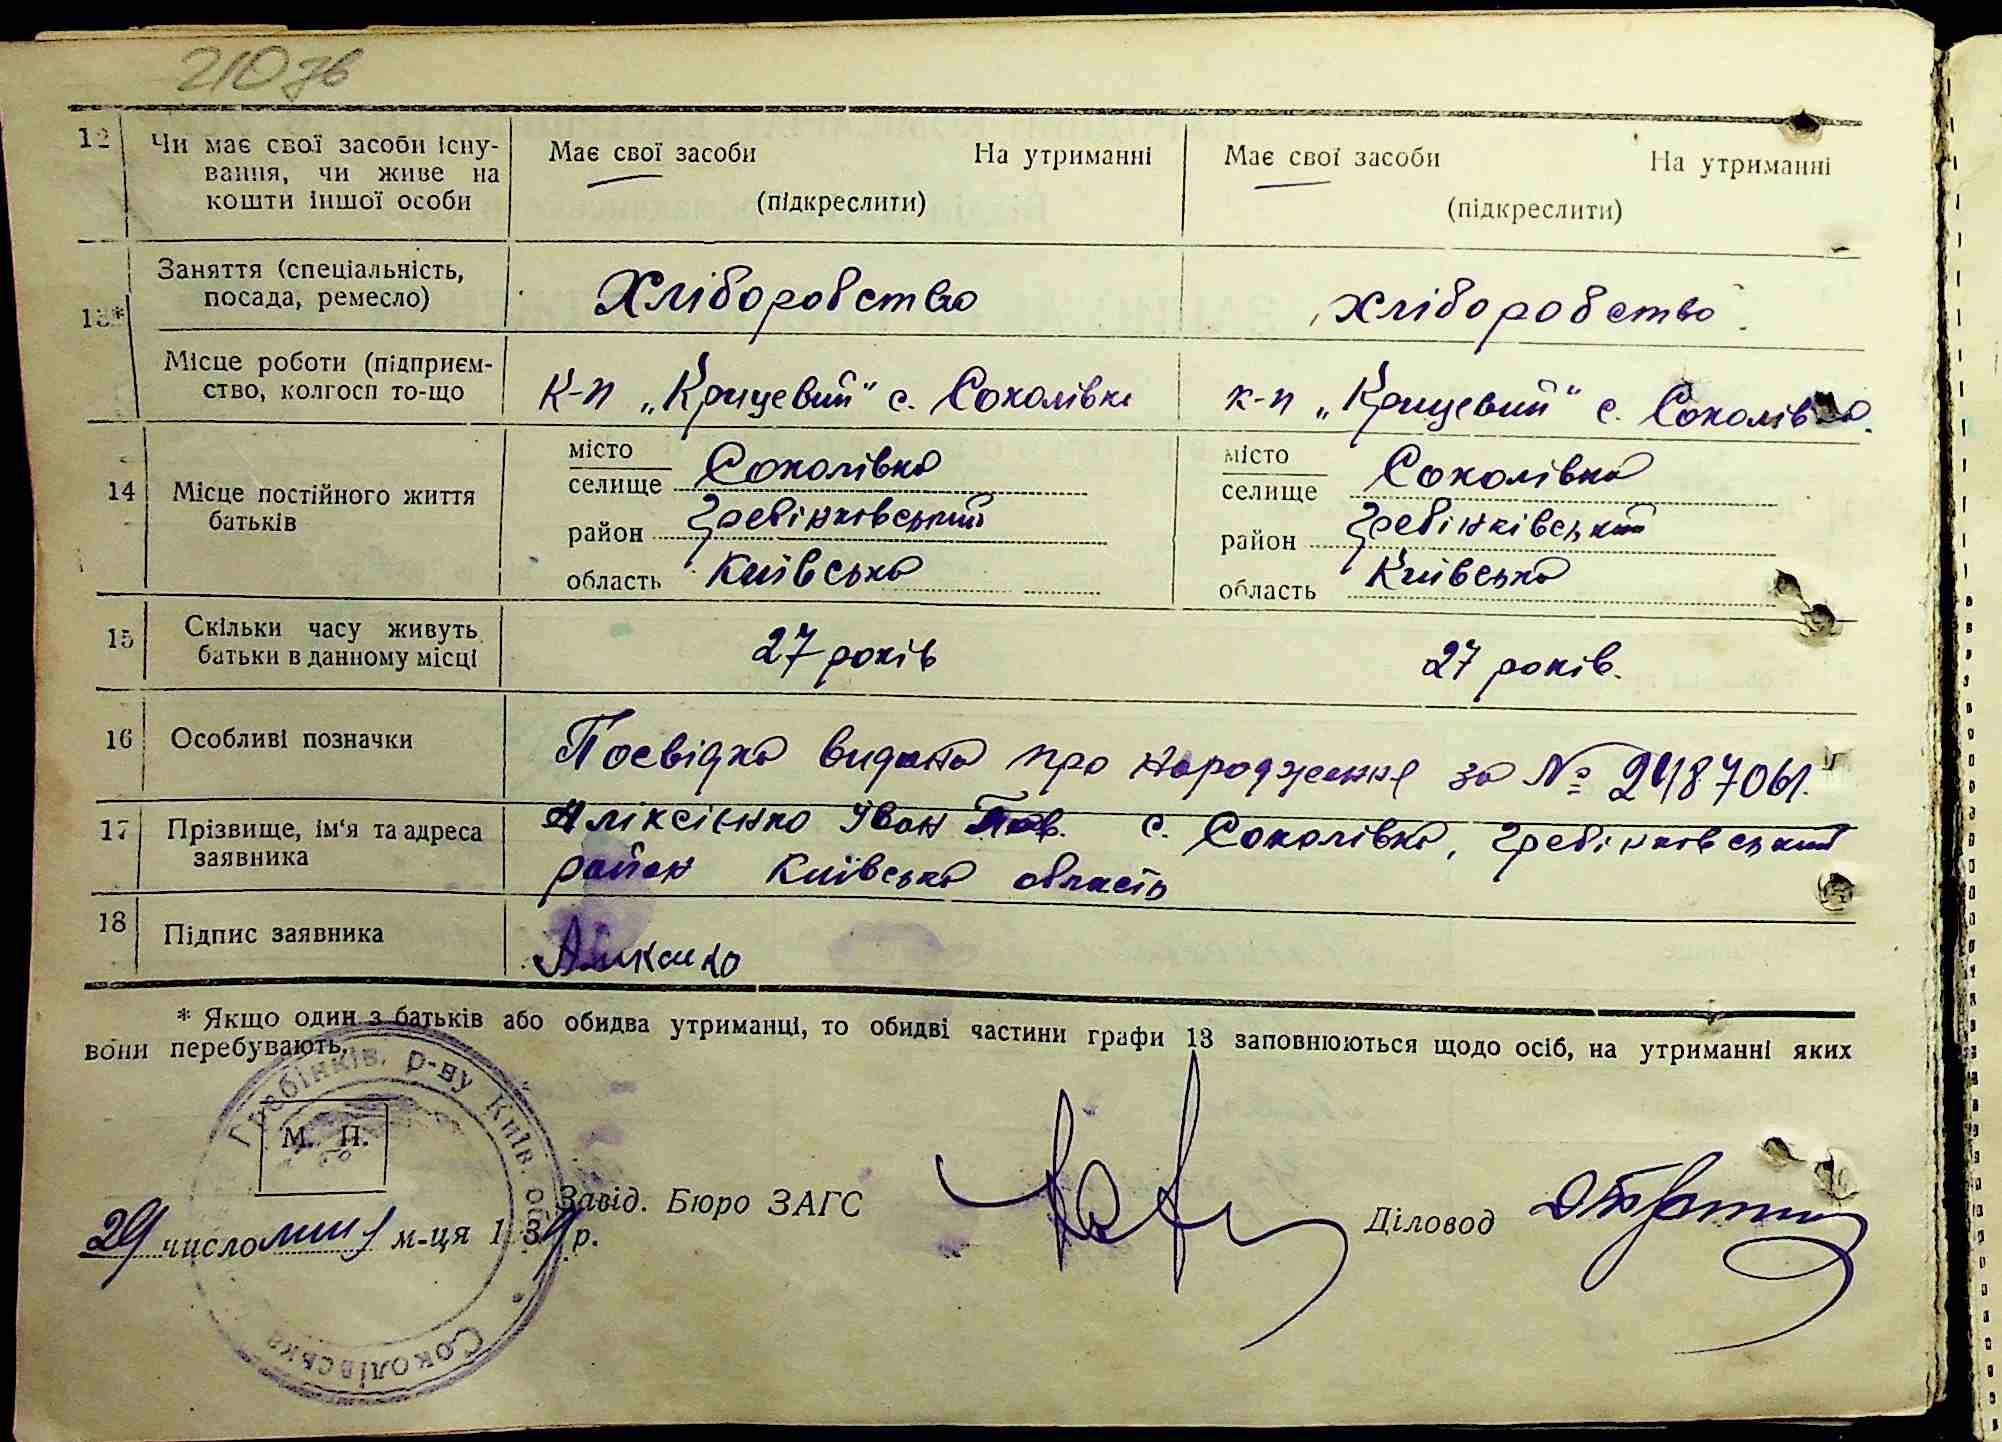 210 зв
12 Чи має свої засоби існу- Має свої засоби На утриманні Має свої засоби На утриманні
вання, чи живе на
кошти іншої особи (підкреслити) (підкреслити)
13* Заняття (спеціальність, Хліборобство хліборобство
посада, ремесло)
Місце роботи (підприєм- К-п „Крицевий" с. Соколівка к-п „Крицевий" с. Соколівка.
ство, колгосп то-що
14 Місце постійного життя місто Соколівка місто Соколівка
батьків селище селище
район Гребінківський район Гребінківський
область Київська область Київська
15 Скільки часу живуть 27 років 27 років.
батьки в данному місці
16 Особливі позначки Посвідка видана про народження за № 2487061.
17 Прізвище, ім'я та адреса Аліксієнко Іван Пав. с. Соколівка, Гребінківський
заявника район Київська область
18 Підпис заявника
* Якщо один з батьків або обидва утриманці, то обидві частини графи 13 заповнюються щодо осіб, на утриманні яких
вони перебувають.
Гребінків. р-ву Київ. об
М. П.
Завід. Бюро ЗАГС Діловод
29 число м-ця 193 р.
Соколівська